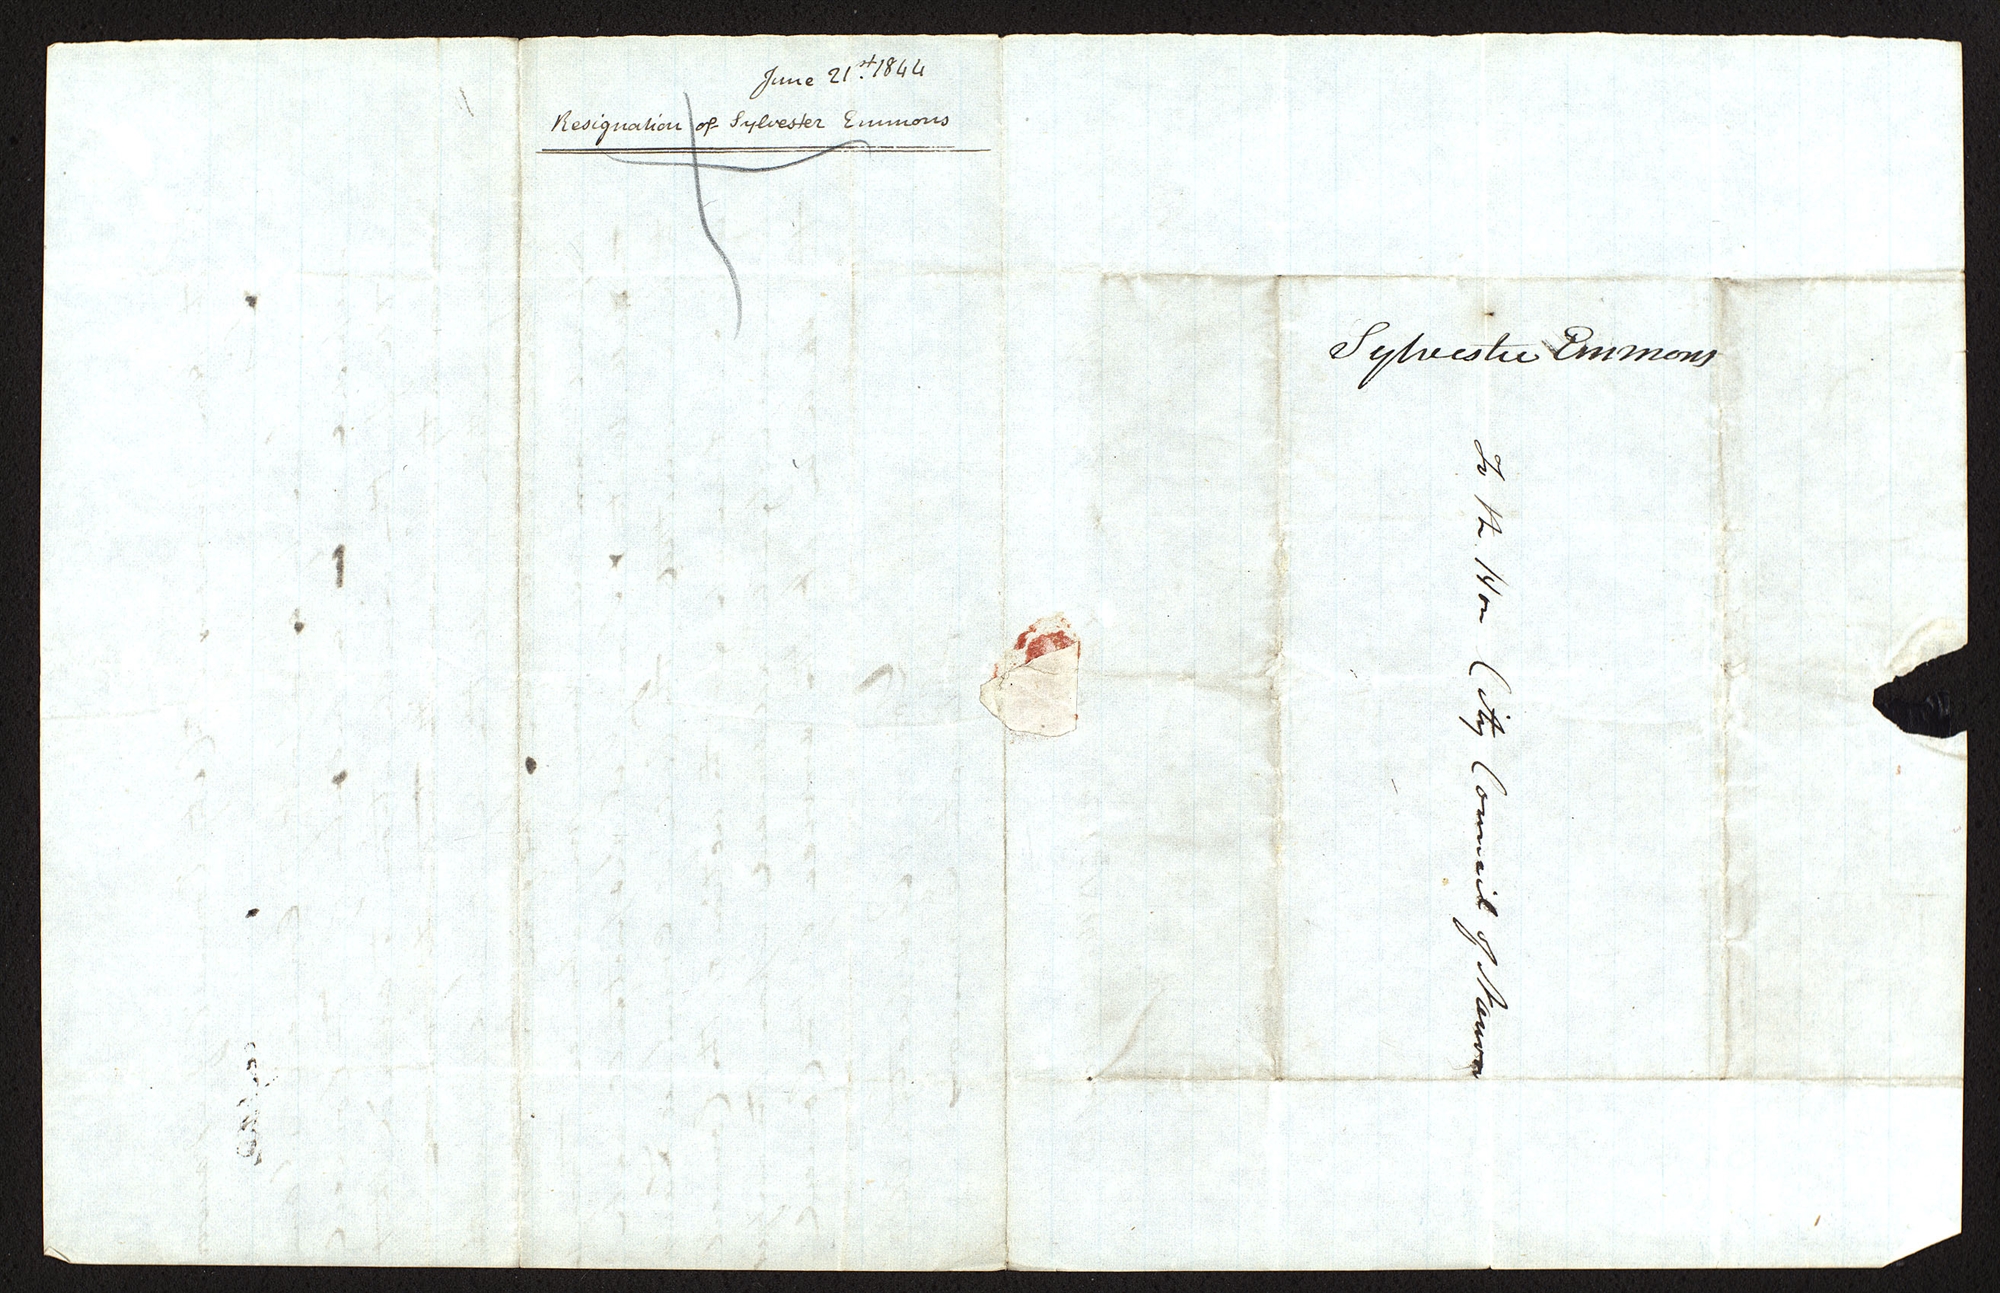 June 21st. 1844
Resignation of Sylvester Emmons
Sylvester Emmons
To the Hon City Council of Nauvoo